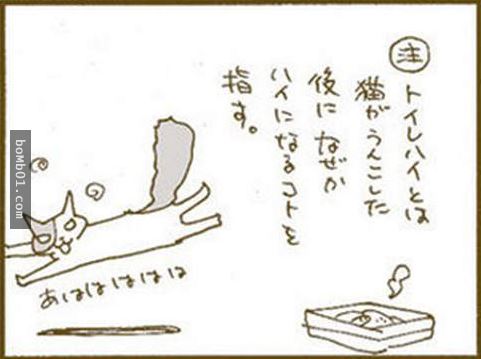 注
トイレハイとは
猫がうんこした
後になぜか
ハイになるコトを
指す。
あはははははは
boMb01.com